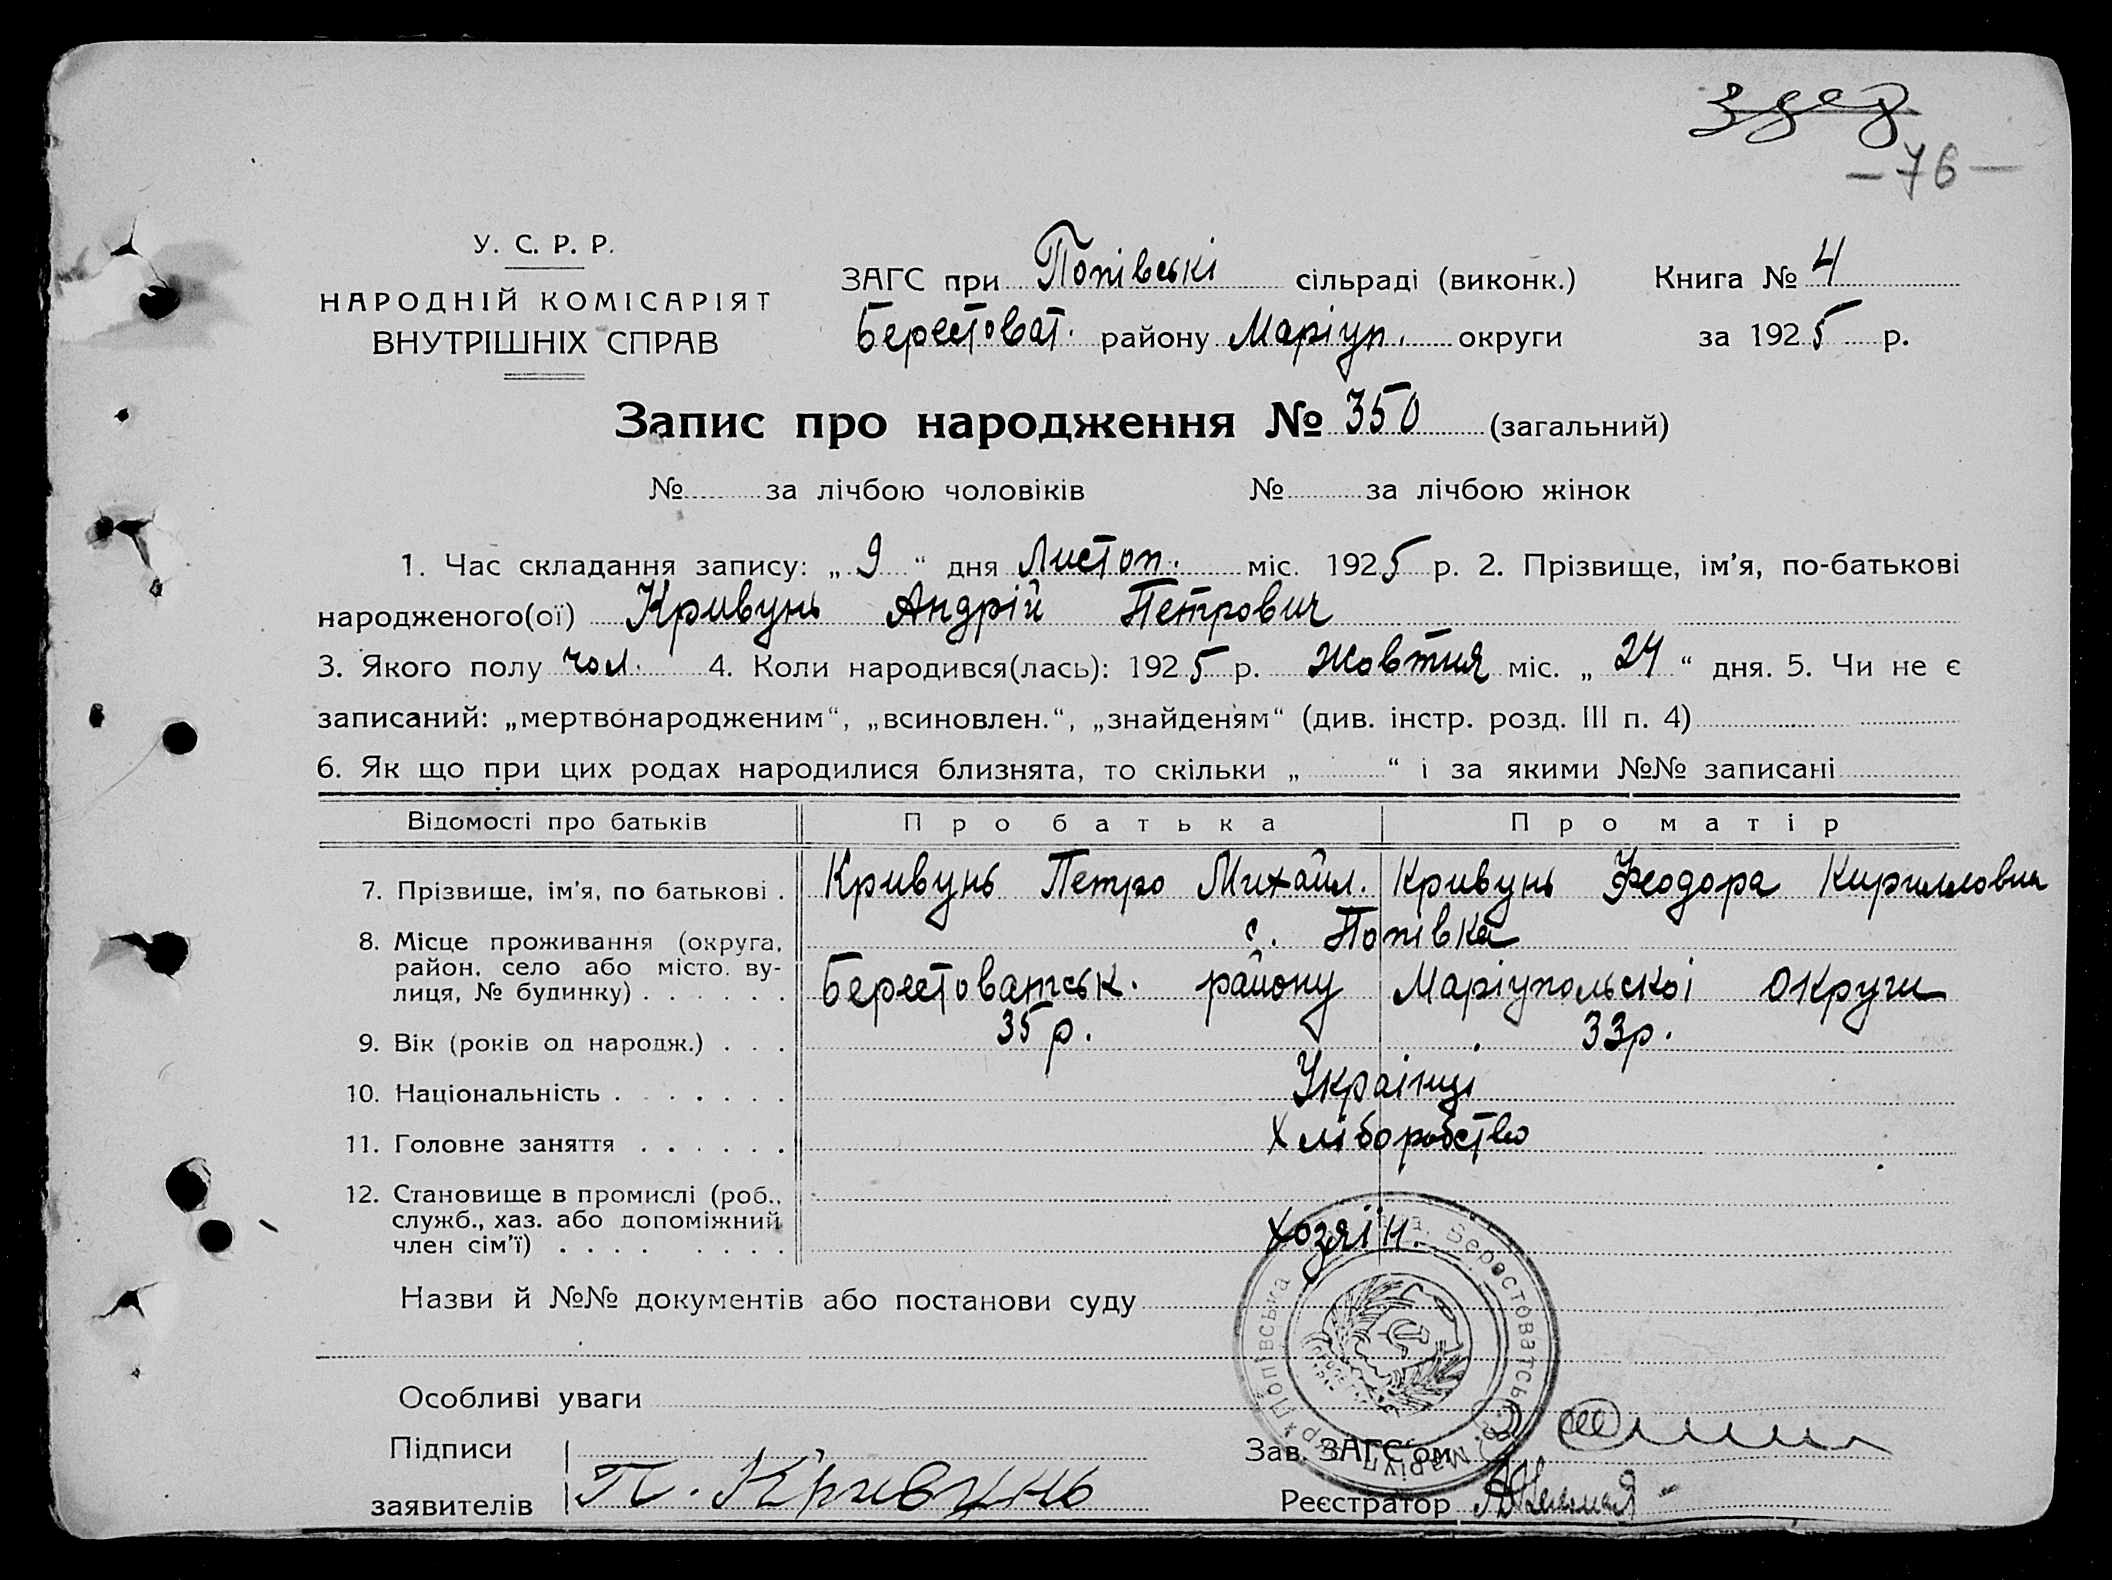 —76—
У. С. Р. Р.
НАРОДНІЙ КОМІСАРІЯТ
ВНУТРІШНІХ СПРАВ
ЗАГС при Попівскі сільраді (виконк.) Книга № 4
Берестоват. району Маріуп. округи за 1925 р.
Запис про народження № 350 (загальний)
№ за лічбою чоловіків № за лічбою жінок
1. Час складання запису: „ 9 “ дня Листоп. міс. 1925 р. 2. Прізвище, ім'я, по-батькові
народженого(ої) Кривунь Андрій Петрович
3. Якого полу чол. 4. Коли народився(лась): 1925 р. Жовтня міс. „ 24 “ дня. 5. Чи не є
записаний: „мертвонародженим“, „всиновлен.“, „знайденям“ (див. інстр. розд. III п. 4)
6. Як що при цих родах народилися близнята, то скільки „ “ і за якими №№ записані
Відомості про батьків Про батька Про матір
7. Прізвище, ім'я, по батькові . Кривунь Петро Михайл. Кривунь Феодора Кирилловна
8. Місце проживання (округа, с. Попівка
район, село або місто, ву-
лиця, № будинку) . . . . . . Берестоватськ. району Маріупольскоі округи
9. Вік (років од народж.) . . . 35 р. 33 р.
10. Національність . . . . . . . Українці
11. Головне заняття . . . . . . Хліборобство
12. Становище в промислі (роб.,
служб., хаз. або допоміжний Хозяїн.
член сім'ї) . . . . . . . .
Назви й №№ документів або постанови суду
Попівська Берестоватськ
Маріуп
Особливі уваги
Підписи Зав. ЗАГС'ом
заявителів П. Кривунь Реєстратор